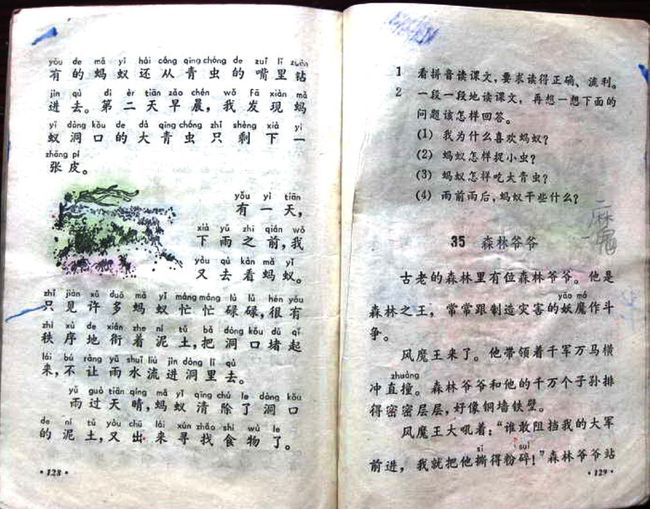 yǒu de mǎ yǐ hái cóng qīng chóng de zuǐ lǐ zuān
有的蚂蚁还从青虫的嘴里钻
jìn qù dì èr tiān zǎo chén wǒ fā xiàn mǎ
进去。第二天早晨，我发现蚂
yǐ dòng kǒu de dà qīng chóng zhǐ shèng xià yì
蚁洞口的大青虫只剩下一
zhāng pí
张皮。
yǒu yì tiān
有一天，
xià yǔ zhī qián wǒ
下雨之前，我
yòu qù kàn mǎ yǐ
又去看蚂蚁。
zhǐ jiàn xǔ duō mǎ yǐ máng máng lù lù hěn yǒu
只见许多蚂蚁忙忙碌碌，很有
zhì xù de xián zhe ní tǔ bǎ dòng kǒu dǔ qǐ
秩序地衔着泥土，把洞口堵起
lái bú ràng yǔ shuǐ liú jìn dòng lǐ qù
来，不让雨水流进洞里去。
yǔ guò tiān qíng mǎ yǐ qīng chú le dòng kǒu
雨过天晴，蚂蚁清除了洞口
de ní tǔ yòu chū lái xún zhǎo shí wù le
的泥土，又出来寻找食物了。
·128·
1 看拼音读课文，要求读得正确、流利。
2 一段一段地读课文，再想一想下面的
问题该怎样回答。
(1) 我为什么喜欢蚂蚁？
(2) 蚂蚁怎样捉小虫？
(3) 蚂蚁怎样吃大青虫？
(4) 雨前雨后，蚂蚁干些什么？
35 森林爷爷
古老的森林里有位森林爷爷。他是
yāo mó
森林之王，常常跟制造灾害的妖魔作斗
争。
风魔王来了。他带领着千军万马横
zhuàng
冲直撞。森林爷爷和他的千万个子孙排
得密密层层，好像铜墙铁壁。
风魔王大吼着：“谁敢阻挡我的大军
sī suì
前进，我就把他撕得粉碎！”森林爷爷站
·129·